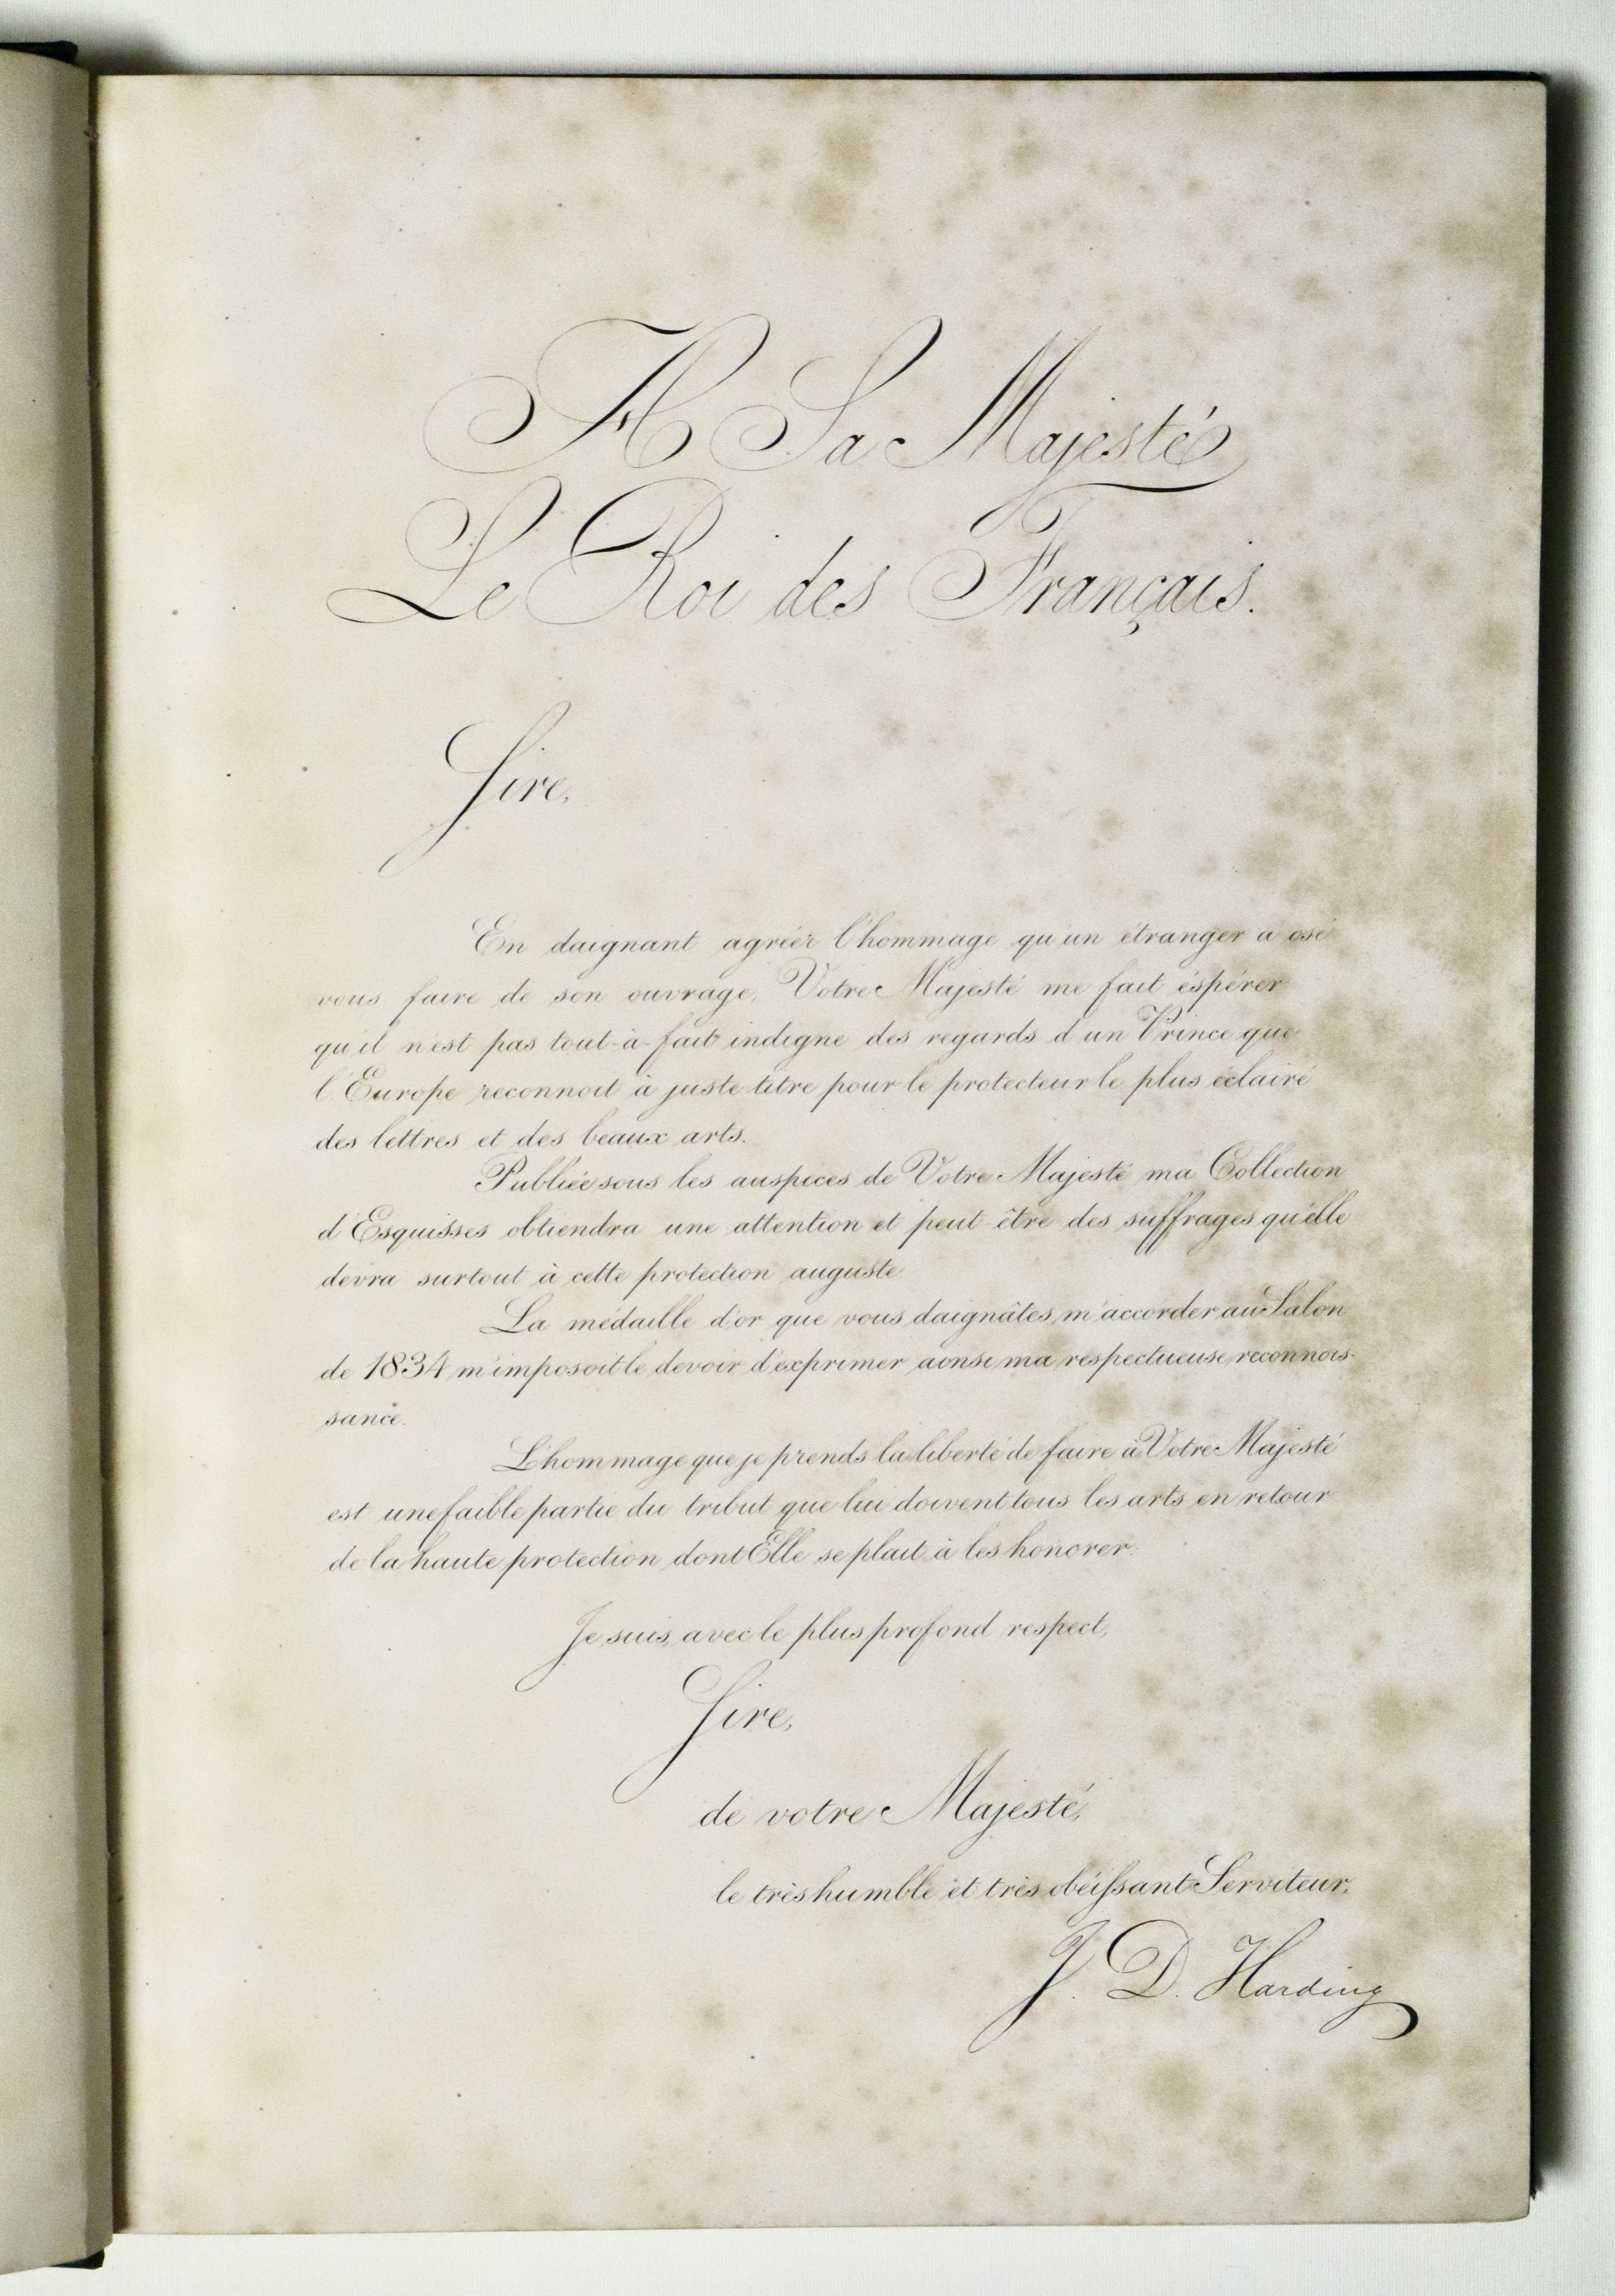 A Sa Majesté
Le Roi des Français.
Sire,
En daignant agréér l'hommage qu'un étranger a osé
vous faire de son ouvrage, Votre Majesté me fait éspérer
qu'il n'est pas tout-à-fait indigne des regards d'un Prince que
l'Europe reconnoit à juste titre pour le protecteur le plus éclairé
des lettres et des beaux arts.
Publiée sous les auspices de Votre Majesté ma Collection
d'Esquisses obtiendra une attention et peut-être des suffrages qu'elle
devra surtout à cette protection auguste
La médaille d'or que vous daignâtes m'accorder au Salon
de 1834 m'imposoit le devoir d'exprimer ainsi ma respectueuse reconnois-
sance.
L'hommage que je prends la liberté de faire à Votre Majesté
est une faible partie du tribut que lui doivent tous les arts en retour
de la haute protection dont Elle se plait à les honorer.
Je suis, avec le plus profond respect,
Sire,
de votre Majesté,
le très humble et très obéiſsant Serviteur,
J. D. Harding